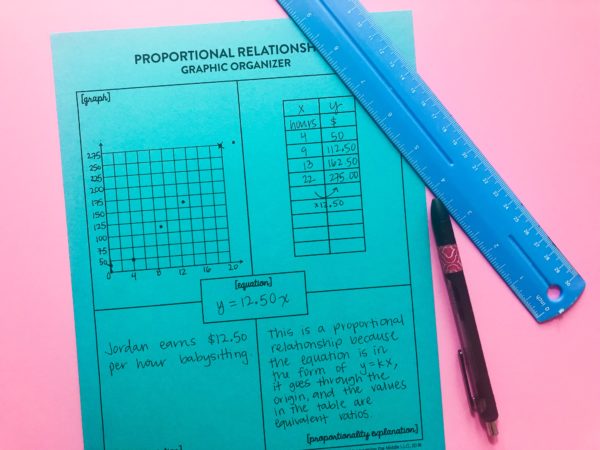 PROPORTIONAL RELATIONSH
GRAPHIC ORGANIZER
[graph]
275
250
225
200
175
150
125
100
75
50
0 4 8 12 16 20
x y
hours $
4 50
9 112.50
13 162.50
22 275.00
x12.50
[equation]
y = 12.50x
Jordan earns $12.50
per hour babysitting.
This is a proportional
relationship because
the equation is in
the form of y=kx,
it goes through the
origin, and the values
in the table are
equivalent ratios.
[proportionality explanation]